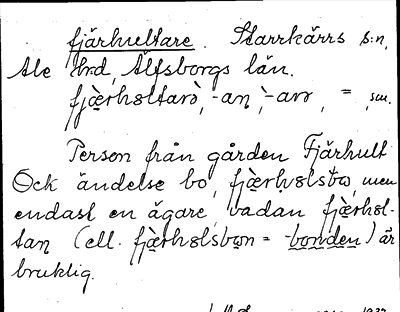 fjärhultare. Starrkärrs s:n,
Ale hrd, Älfsborgs län.
fjæ̀rhɷltarə, -an, -arr, =, sm.
Person från gården Fjärhult
Ock ändelse bo, fjæ̀rhɷlsbɷ, men
endast en ägare, vadan fjæ̀rhɷl-
tan (ell. fjæ̀rhɷlsbɷn = -bonden) är
bruklig.